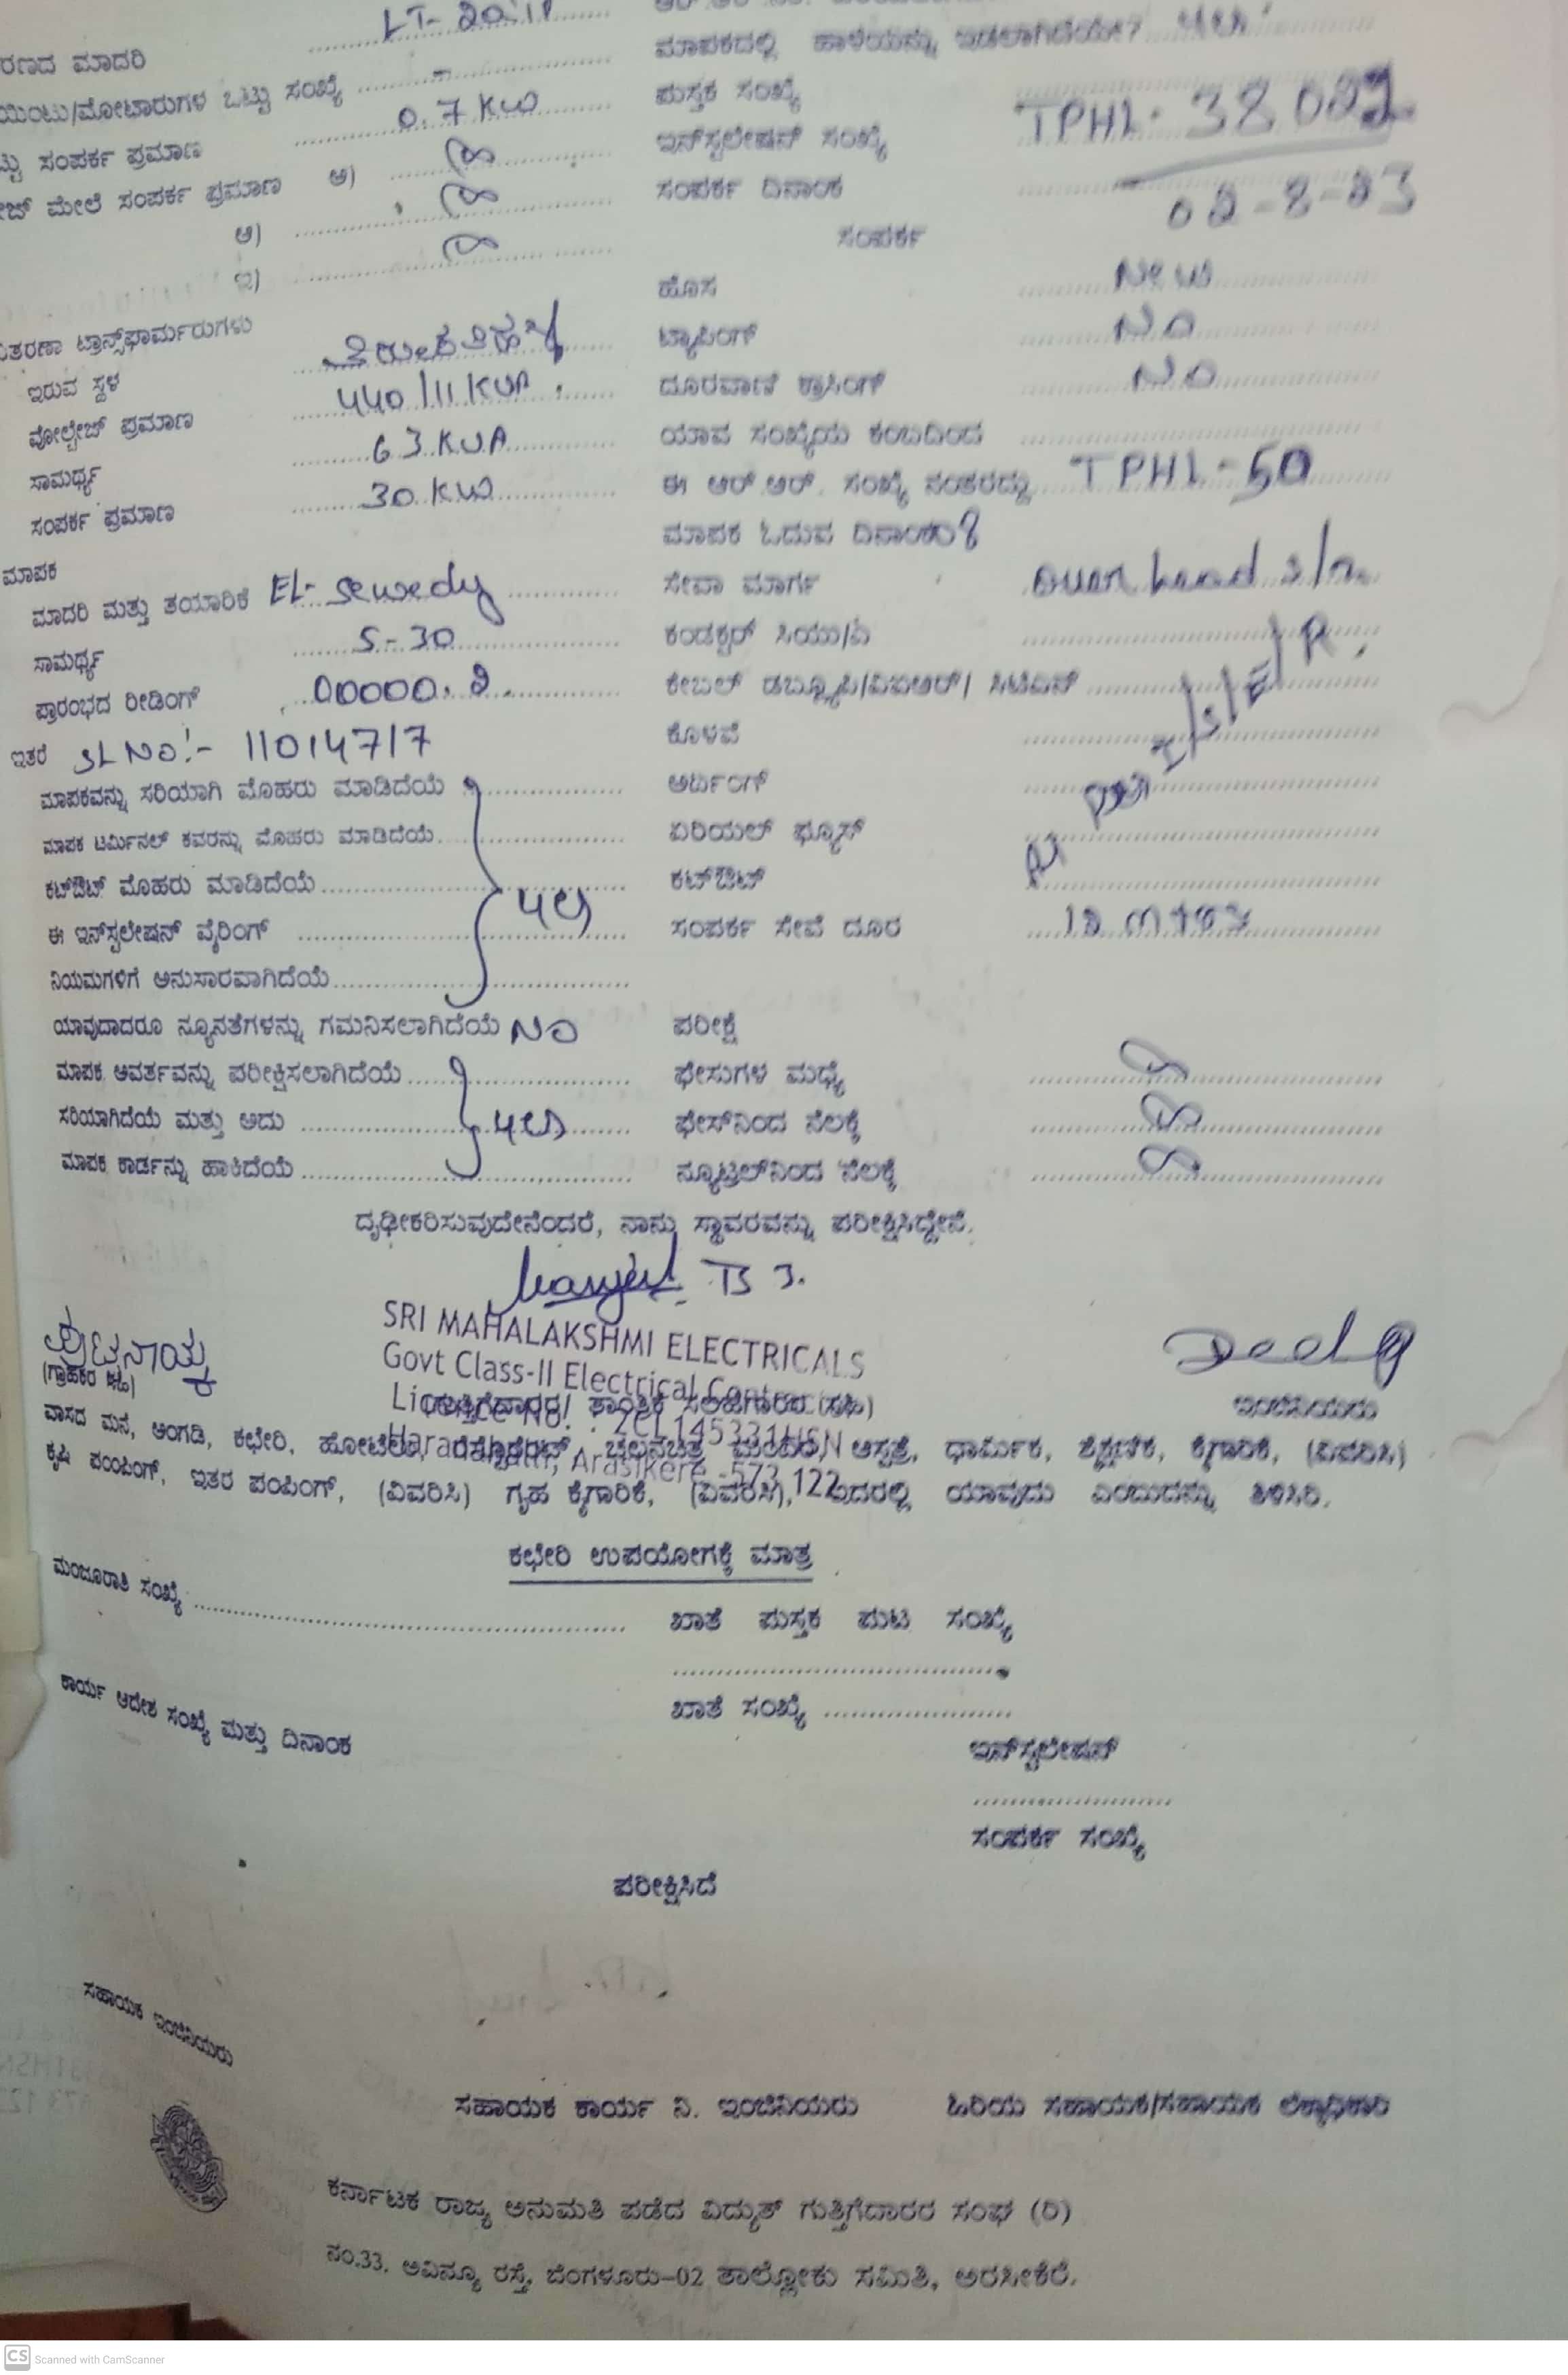 LT-
ರಣದ ಮಾದರಿ
ಮಾಪಕದಲ್ಲಿ ಹಾಳೆಯನ್ನು ಇಡಲಾಗಿದೆಯೇ? yes
ಯಿಂಟು/ಮೋಟಾರುಗಳ ಒಟ್ಟು ಸಂಖ್ಯೆ -
ಪುಸ್ತಕ ಸಂಖ್ಯೆ
ಟ್ಟು ಸಂಪರ್ಕ ಪ್ರಮಾಣ 0.7 KW
ಇನ್‌ಸ್ಟಲೇಷನ್ ಸಂಖ್ಯೆ TPHL-
ಮೇಲೆ ಸಂಪರ್ಕ ಪ್ರಮಾಣ ಅ)
ಸಂಪರ್ಕ ದಿನಾಂಕ 02-8-23
ಆ)
ಸಂಪರ್ಕ
ಇ)
ಹೊಸ New
ಟ್ರಾನ್ಸ್‌ಫಾರ್ಮರುಗಳು
ಟ್ಯಾಪಿಂಗ್ NO
ಇರುವ ಸ್ಥಳ
ದೂರವಾಣಿ ಕ್ರಾಸಿಂಗ್ NO
ವೋಲ್ಟೇಜ್ ಪ್ರಮಾಣ 440/11 KVA
ಯಾವ ಸಂಖ್ಯೆಯ ಕಂಬದಿಂದ
ಸಾಮರ್ಥ್ಯ 63 KVA
ಈ ಆರ್.ಆರ್. ಸಂಖ್ಯೆ ನಂತರದ್ದು TPHL-50
ಸಂಪರ್ಕ ಪ್ರಮಾಣ 30 KW
ಮಾಪಕ ಓದುವ ದಿನಾಂಕ
ಮಾಪಕ
ಮಾದರಿ ಮತ್ತು ತಯಾರಿಕೆ EL-Sewedy
ಸೇವಾ ಮಾರ್ಗ Over head s/n.
ಸಾಮರ್ಥ್ಯ 5-30
ಕಂಡಕ್ಟರ್ ಸಿಯು/ಎ
ಪ್ರಾರಂಭದ ರೀಡಿಂಗ್ 00000.2
ಕೇಬಲ್ ಡಬ್ಲ್ಯೂಪಿ/ವಿಐಆರ್/ ಸಿಟಿಎಸ್
ಇತರೆ SL NO:- 11014717
ಕೊಳವೆ
ಮಾಪಕವನ್ನು ಸರಿಯಾಗಿ ಮೊಹರು ಮಾಡಿದೆಯೆ
ಅರ್ಥಿಂಗ್
ಮಾಪಕ ಟರ್ಮಿನಲ್ ಕವರನ್ನು ಮೊಹರು ಮಾಡಿದೆಯೆ
ಏರಿಯಲ್ ಫ್ಯೂಸ್
ಕಟ್‌ಔಟ್ ಮೊಹರು ಮಾಡಿದೆಯೆ
ಕಟ್‌ಔಟ್
yes
ಈ ಇನ್‌ಸ್ಟಲೇಷನ್ ವೈರಿಂಗ್
ಸಂಪರ್ಕ ಸೇವೆ ದೂರ
ನಿಯಮಗಳಿಗೆ ಅನುಸಾರವಾಗಿದೆಯೆ
ಯಾವುದಾದರೂ ನ್ಯೂನತೆಗಳನ್ನು ಗಮನಿಸಲಾಗಿದೆಯೆ NO
ಪರೀಕ್ಷೆ
ಮಾಪಕ ಆವರ್ತವನ್ನು ಪರೀಕ್ಷಿಸಲಾಗಿದೆಯೆ
ಫೇಸುಗಳ ಮಧ್ಯೆ
ಸರಿಯಾಗಿದೆಯೆ ಮತ್ತು ಅದು yes
ಫೇಸ್‌ನಿಂದ ನೆಲಕ್ಕೆ
ಮಾಪಕ ಕಾರ್ಡನ್ನು ಹಾಕಿದೆಯೆ
ನ್ಯೂಟ್ರಲ್‌ನಿಂದ ನೆಲಕ್ಕೆ
ದೃಢೀಕರಿಸುವುದೇನೆಂದರೆ, ನಾನು ಸ್ಥಾವರವನ್ನು ಪರೀಕ್ಷಿಸಿದ್ದೇನೆ.
SRI MAHALAKSHMI ELECTRICALS
Govt Class-II Electrical Contractor
(ಗ್ರಾಹಕರ ಸಹಿ)
ಇಂಜಿನಿಯರು
ವಾಸದ ಮನೆ, ಅಂಗಡಿ, ಕಛೇರಿ, ಹೋಟೆಲು, ರೆಸ್ಟೊರೆಂಟ್, ಚಲನಚಿತ್ರ ಮಂದಿರ, ಆಸ್ಪತ್ರೆ, ಧಾರ್ಮಿಕ, ಶೈಕ್ಷಣಿಕ, ಕೈಗಾರಿಕೆ, (ವಿವರಿಸಿ)
Arasikere -573 122
ಕೃಷಿ ಪಂಪಿಂಗ್, ಇತರ ಪಂಪಿಂಗ್, (ವಿವರಿಸಿ) ಗೃಹ ಕೈಗಾರಿಕೆ, (ವಿವರಿಸಿ), ಇದರಲ್ಲಿ ಯಾವುದು ಎಂಬುದನ್ನು ತಿಳಿಸಿರಿ.
ಕಛೇರಿ ಉಪಯೋಗಕ್ಕೆ ಮಾತ್ರ
ಮಂಜೂರಾತಿ ಸಂಖ್ಯೆ
ಖಾತೆ ಪುಸ್ತಕ ಪುಟ ಸಂಖ್ಯೆ
ಖಾತೆ ಸಂಖ್ಯೆ
ಕಾರ್ಯ ಆದೇಶ ಸಂಖ್ಯೆ ಮತ್ತು ದಿನಾಂಕ
ಇನ್‌ಸ್ಟಲೇಷನ್
ಸಂಪರ್ಕ ಸಂಖ್ಯೆ
ಪರೀಕ್ಷಿಸಿದೆ
ಸಹಾಯಕ ಇಂಜಿನಿಯರು
ಸಹಾಯಕ ಕಾರ್ಯ ನಿ. ಇಂಜಿನಿಯರು
ಹಿರಿಯ ಸಹಾಯಕ/ಸಹಾಯಕ ಲೆಕ್ಕಾಧಿಕಾರಿ
ಕರ್ನಾಟಕ ರಾಜ್ಯ ಅನುಮತಿ ಪಡೆದ ವಿದ್ಯುತ್ ಗುತ್ತಿಗೆದಾರರ ಸಂಘ (ರಿ)
ನಂ.33. ಅವಿನ್ಯೂ ರಸ್ತೆ, ಬೆಂಗಳೂರು-02 ತಾಲ್ಲೋಕು ಸಮಿತಿ, ಅರಸೀಕೆರೆ.
CS Scanned with CamScanner